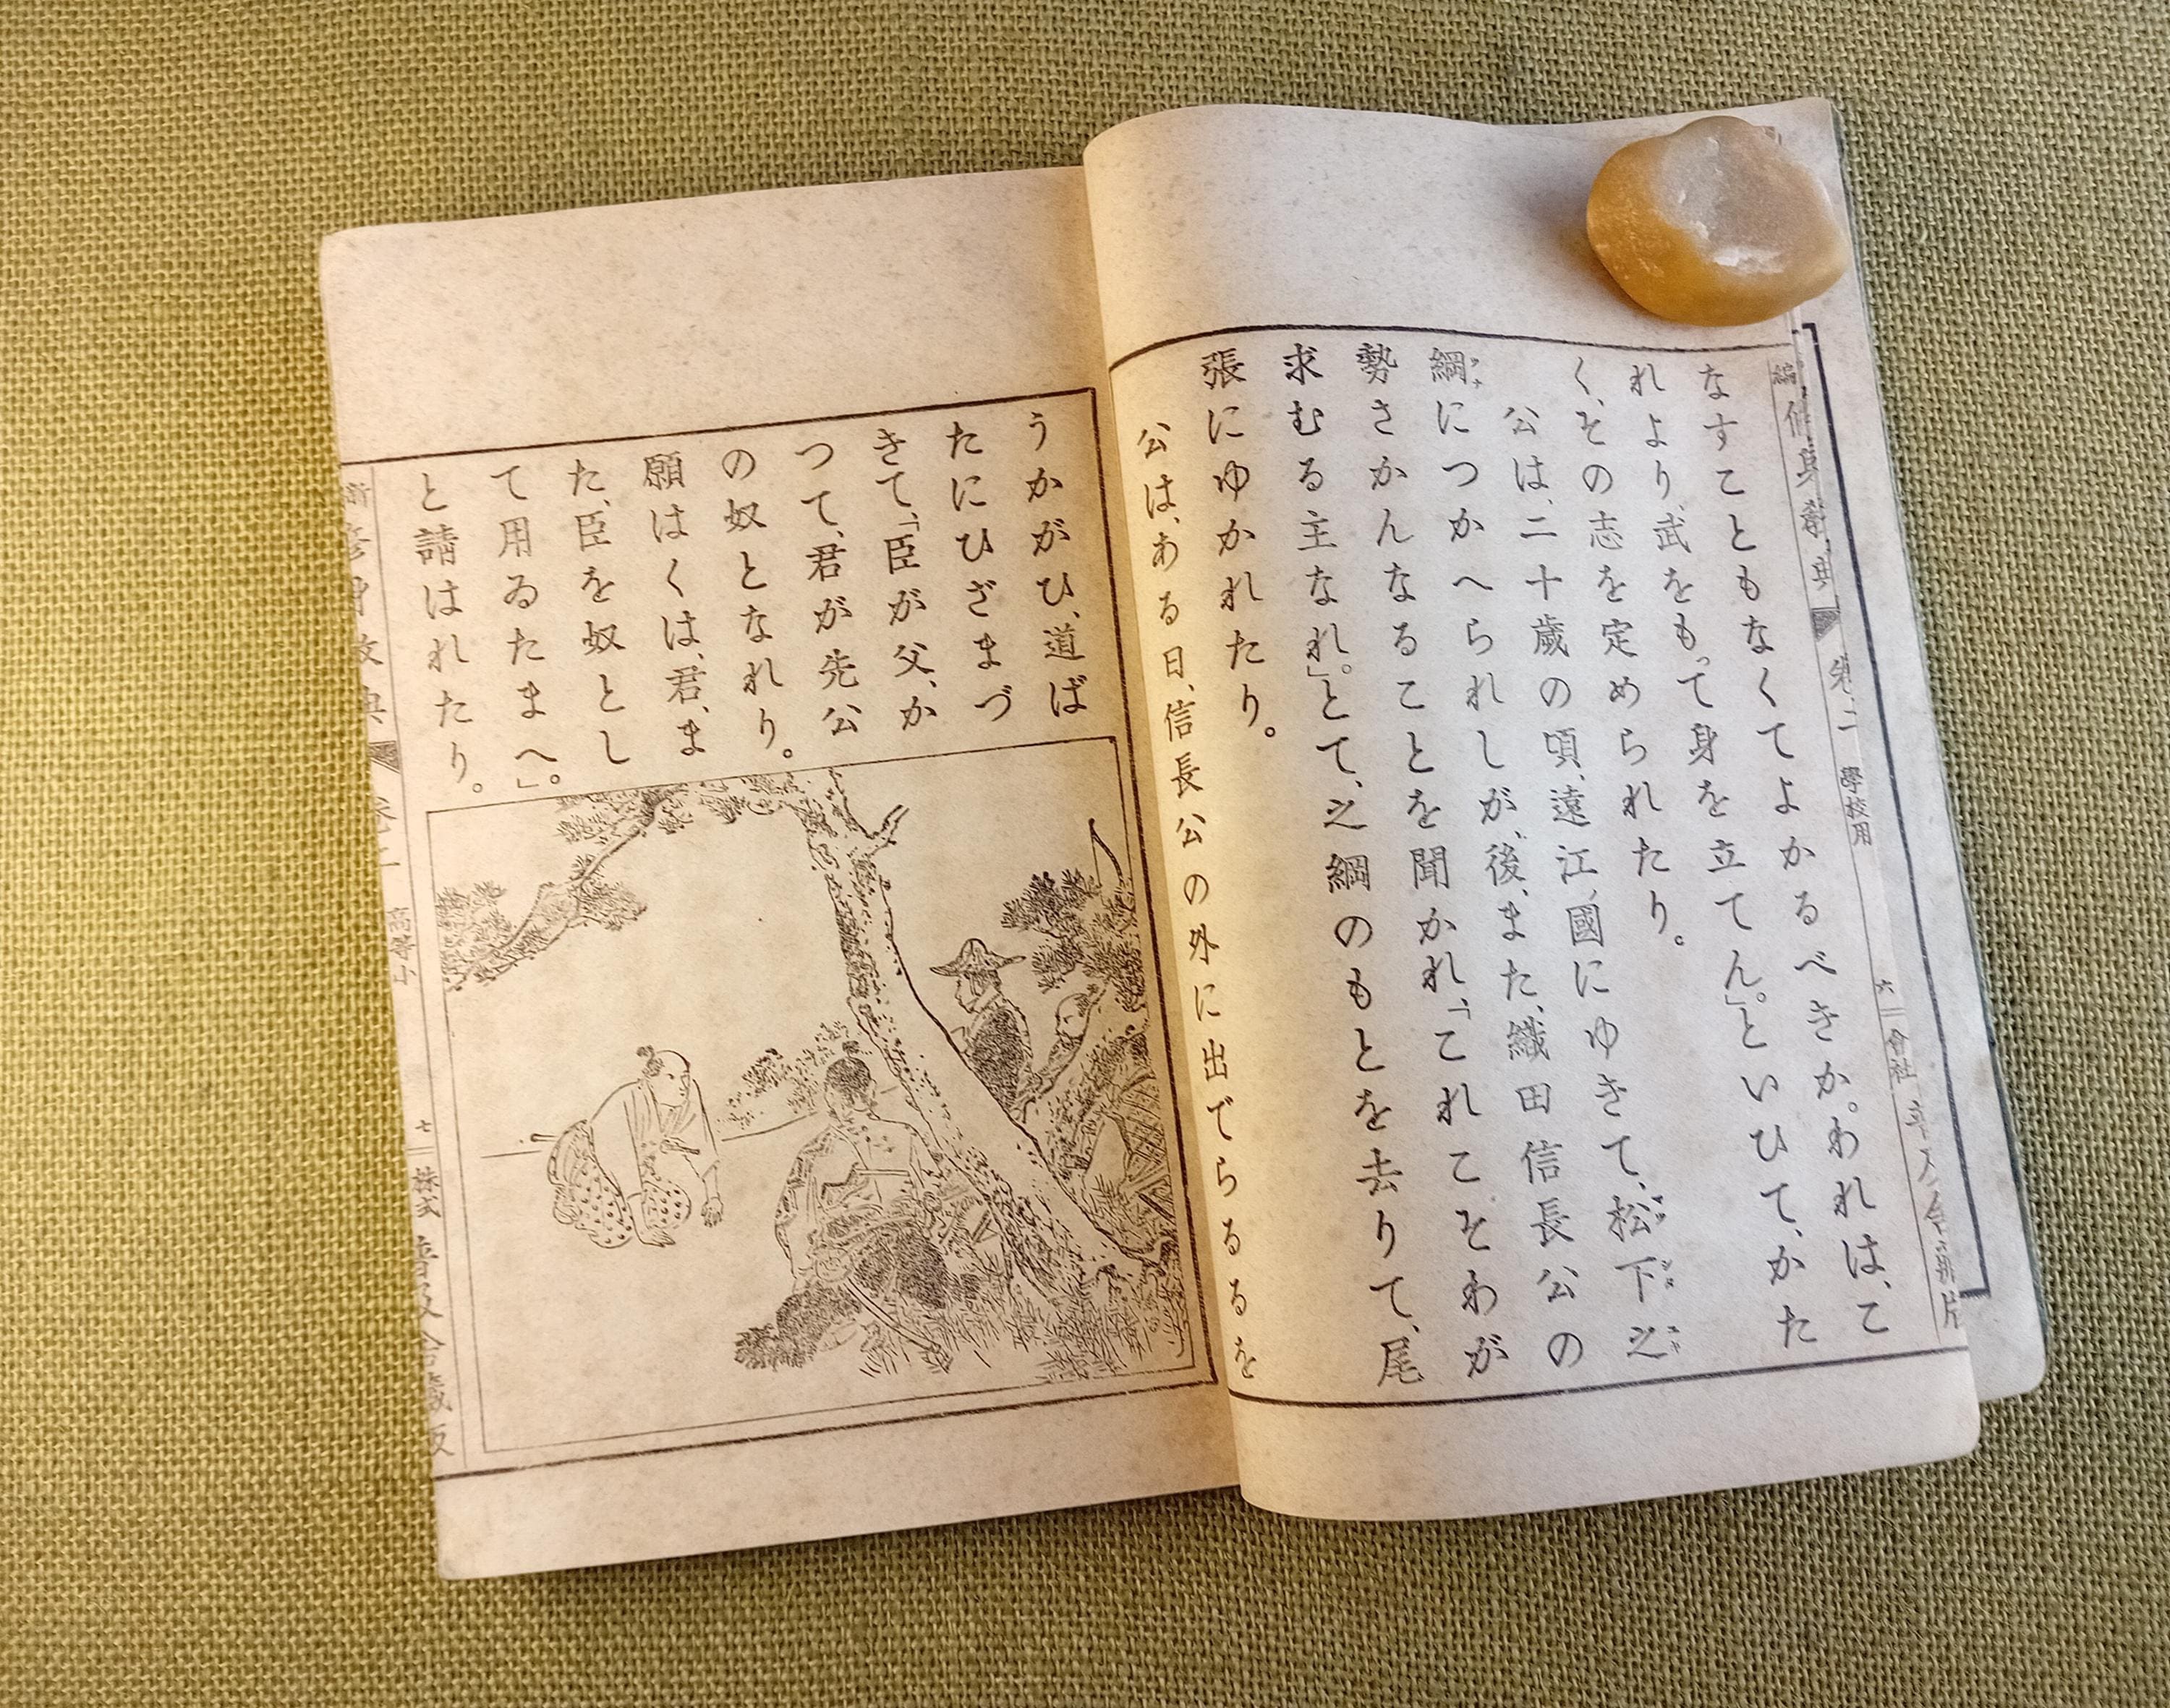 なすこともなくてよかるべきか。われは、こ
れより、武をもって身を立てん」。といひて、かた
く、その志を定められたり。
公は、二十歳の頃、遠江ノ國にゆきて、松下之
綱につかへられしが、後、また、織田信長公の
勢さかんなることを聞かれ、「これこそわが
求むる主なれ」。とて、之綱のもとを去りて、尾
張にゆかれたり。
公は、ある日、信長公の外に出でらるるを
うかがひ、道ば
たにひざまづ
きて、「臣が父、か
つて、君が先公
の奴となれり。
願はくは、君、ま
た、臣を奴とし
て用ゐたまへ」。
と請はれたり。
修身教典
卷二
學校用
六
會社
修身教典
卷二
高等小
七
株式
普及舍藏版
マツ
シタ
ユキ
ツナ